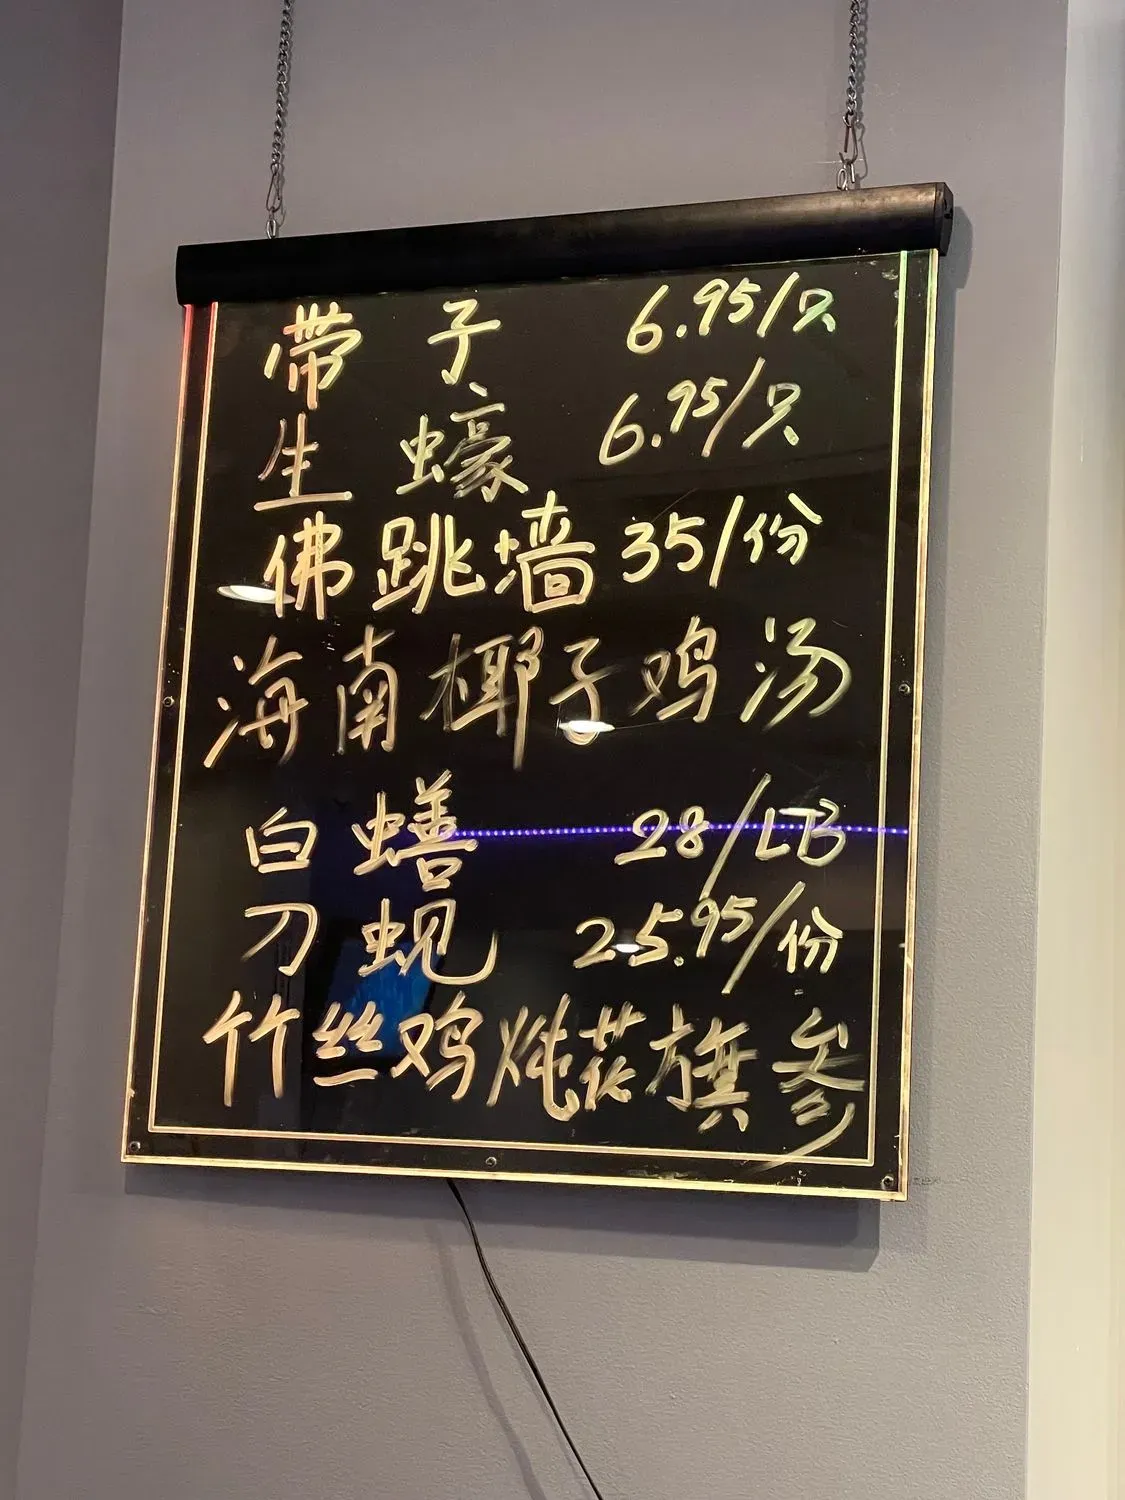 带子 6.95/只
生蠔 6.95/只
佛跳墙 35/份
海南椰子鸡汤
白蟮 28/LB
刀蚬 25.95/份
竹丝鸡炖花旗参